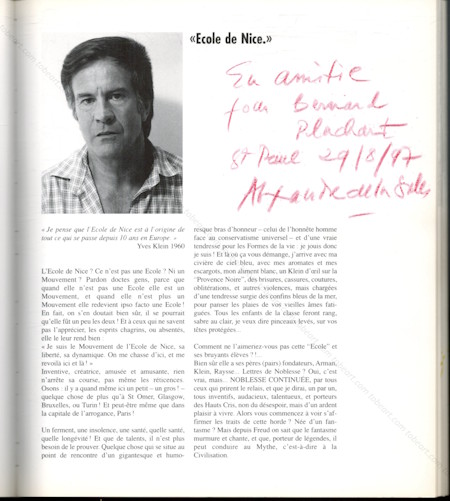 «Ecole de Nice.»
En amitié
pour Bernard
Plachart
St Paul 29/8/97
Alexandre de la Salle
« Je pense que l'Ecole de Nice est à l'origine de
tout ce qui se passe depuis 10 ans en Europe »
Yves Klein 1960
L'Ecole de Nice ? Ce n'est pas une Ecole ? Ni un
Mouvement ? Pardon doctes gens, parce que
quand elle n'est pas une Ecole elle est un
Mouvement, et quand elle n'est plus un
Mouvement elle redevient ipso facto une Ecole !
En fait, on s'en doutait bien sûr, il se pourrait
qu'elle fût un peu les deux ! Et à ceux qui ne savent
pas l'apprécier, les esprits chagrins, ou absents,
elle le leur rend bien :
« Je suis le Mouvement de l'Ecole de Nice, sa
liberté, sa dynamique. On me chasse d'ici, et me
revoilà ici et là ! »
Inventive, créatrice, amusée et amusante, rien
n'arrête sa course, pas même les réticences.
Osons : il y a quand même ici un petit « un gron » –
quelque chose de plus qu'à St Omer, Glasgow,
Bruxelles, ou Turin ! Et peut être même que dans
la capitale de l'arrogance, Paris !
Un ferment, une insolence, une santé, quelle santé,
quelle longévité ! Et que de talents, il n'est plus
besoin de le prouver. Quelque chose qui se situe au
point de rencontre d'un gigantesque et humo-
resque bras d'honneur – celui de l'honnête homme
face au conservatisme universel – et d'une vraie
tendresse pour les Formes de la vie : je jouis donc
je suis ! Et là où ça vous démange, j'arrive avec ma
civière de ciel bleu, avec mes aromates et mes
escargots, mon aliment blanc, un Klein d'œil sur la
"Provence Noire", des brisures, cassures, coutures,
oblitérations, et autres violences, mais chargées
d'une tendresse surgie des confins bleus de la mer,
pour panser les plaies de vos vieilles âmes fati-
guées. Tous les enfants de la classe feront rang,
sabre au clair, je veux dire pinceaux levés, sur vos
têtes protégées...
Comment ne l'aimeriez-vous pas cette "Ecole" et
ses bruyants élèves ?!...
Bien sûr elle a ses pères (pairs) fondateurs, Arman,
Klein, Raysse... Lettres de Noblesse ? Oui, c'est
vrai, mais... NOBLESSE CONTINUÉE, par tous
ceux qui prirent le relais, et qui je dirai, un par un,
tous inventifs, audacieux, talentueux, et porteurs
des Hauts Cris, non du désespoir, mais d'un ardent
plaisir à vivre. Alors vous commencez à voir s'af-
firmer les traits de cette horde ? Née d'un fan-
tasme ? Mais depuis Freud on sait que le fantasme
murmure et chante, et que, porteur de légendes, il
peut conduire au Mythe, c'est-à-dire à la
Civilisation.